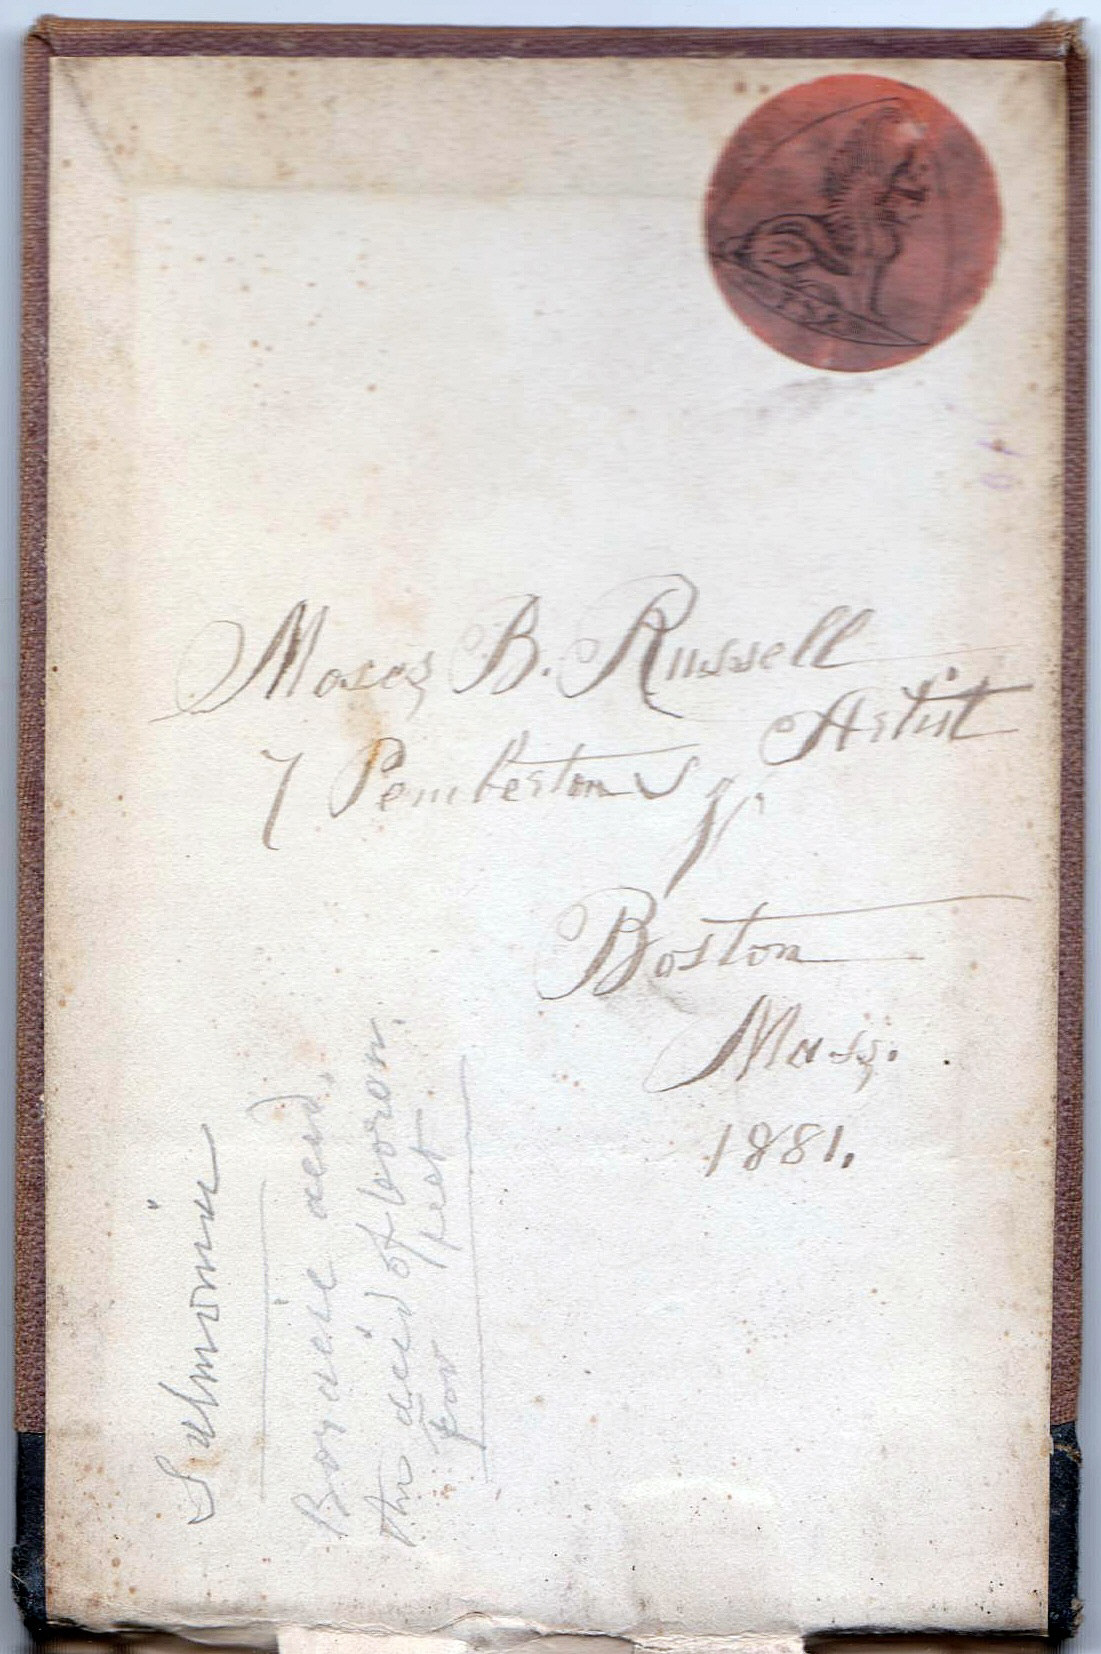 Moses B. Russell
Artist
7 Pemberton Sq.
Boston
Mass.
1881.
Boracic acid.
the acid of boron.
for feet